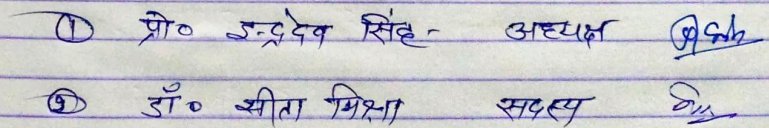 ① प्रो० इन्द्रदेव सिंह - अध्यक्ष
② डॉ० सीता मिश्रा सदस्य